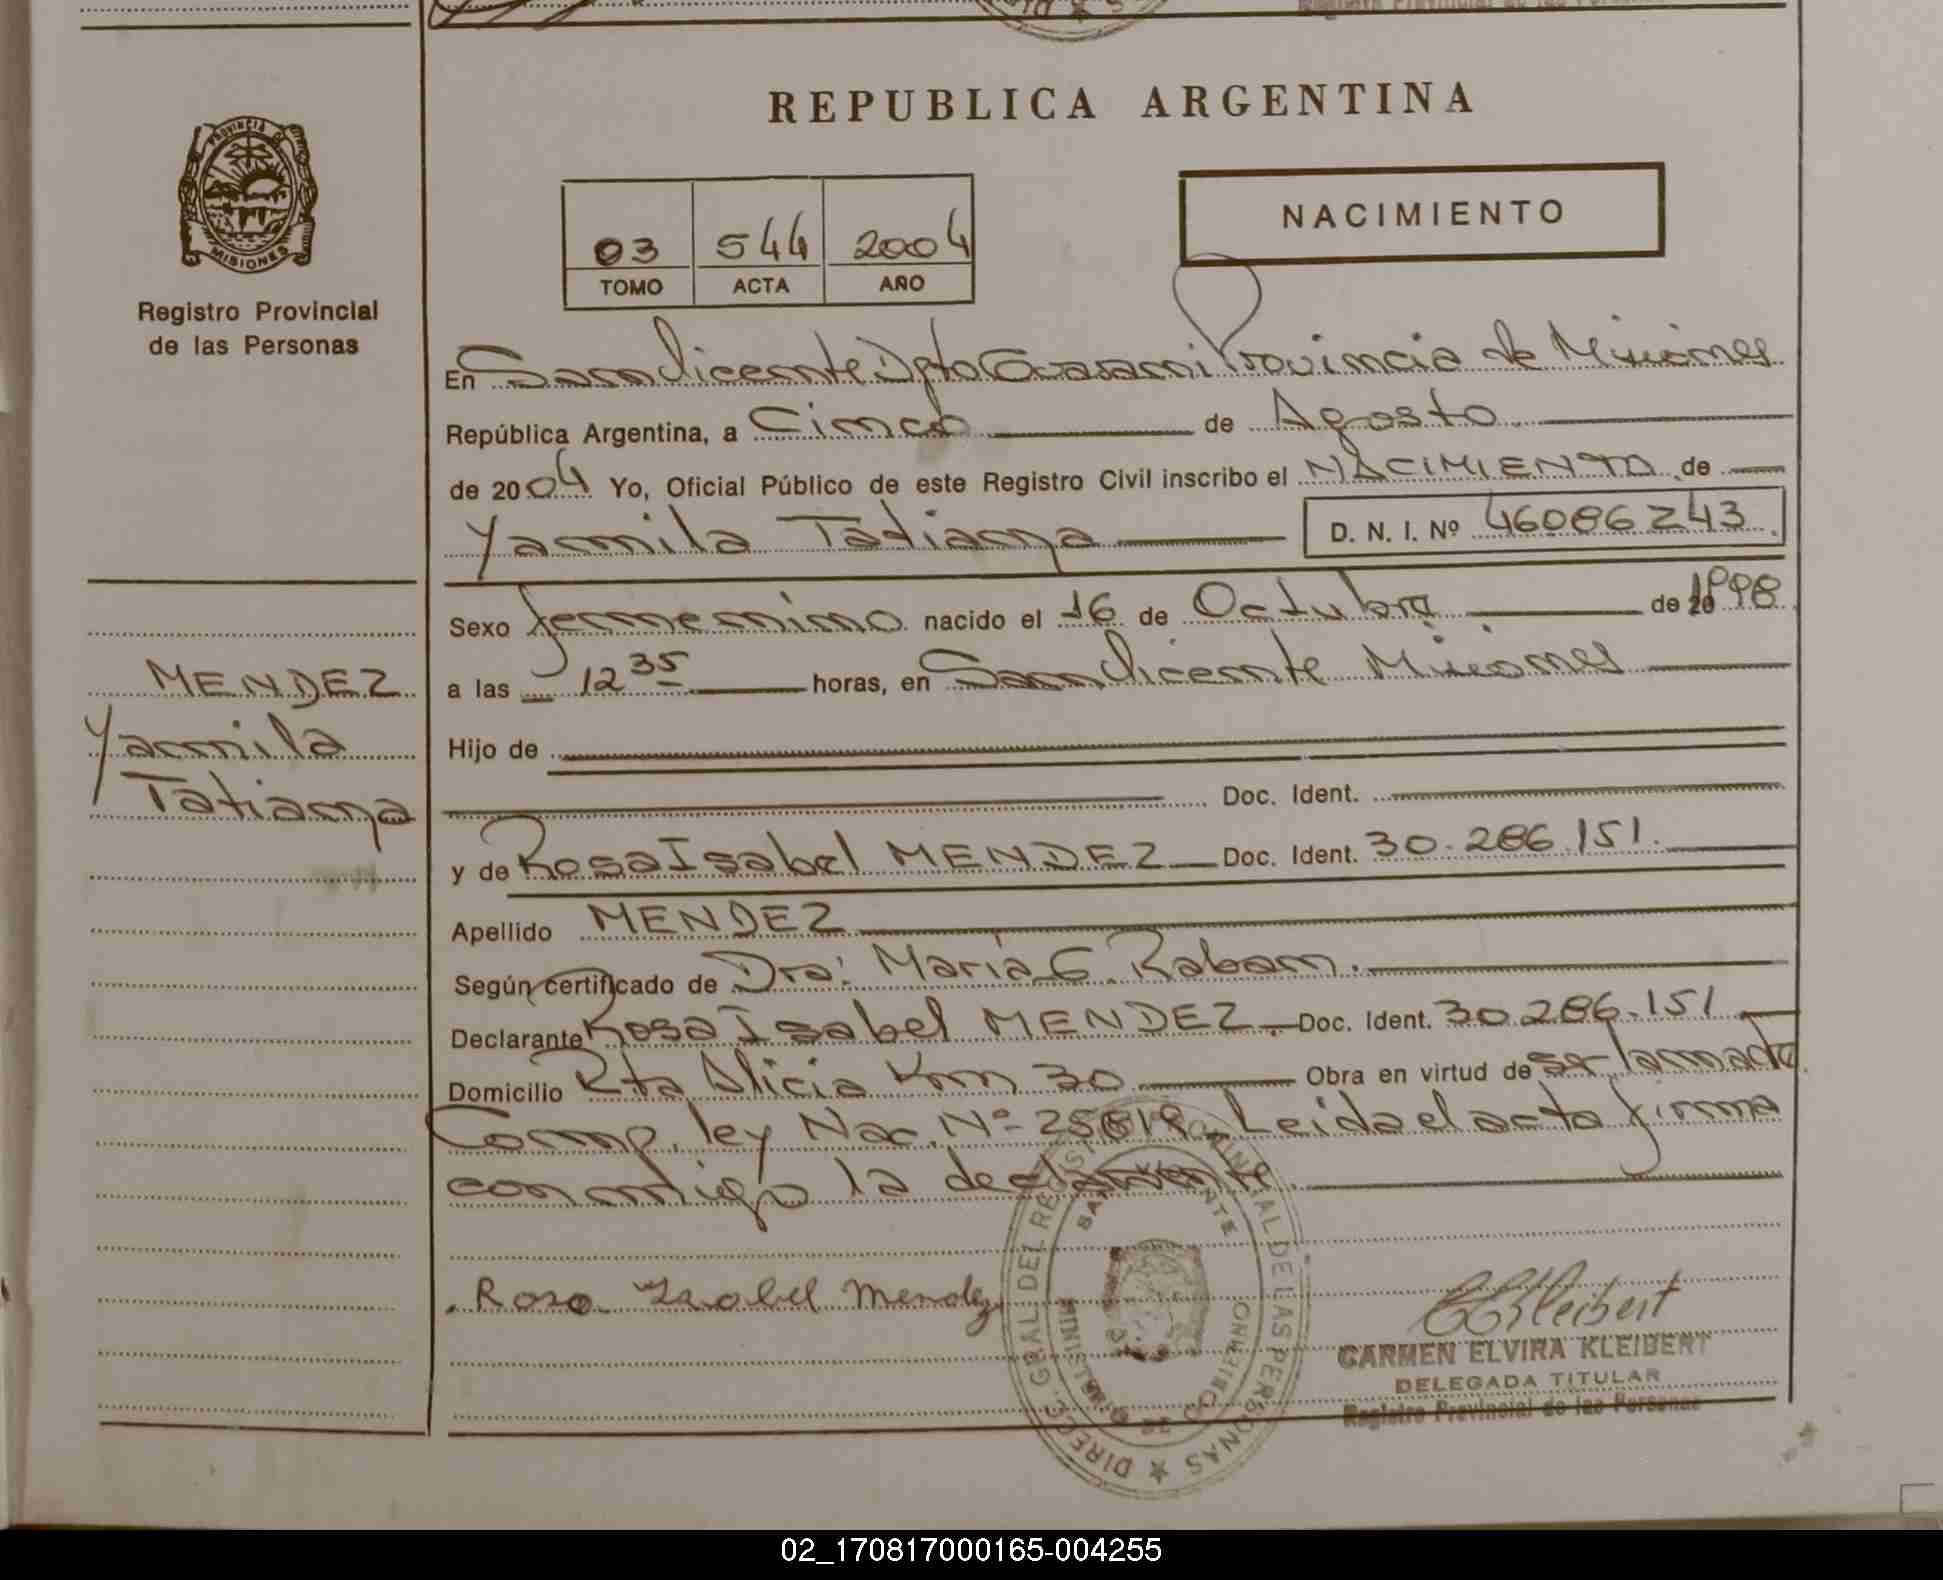 REPUBLICA ARGENTINA
PROVINCIA DE
MISIONES
Registro Provincial
de las Personas
NACIMIENTO
03 544 2004
TOMO ACTA AÑO
En San Vicente Dpto Guarani Provincia de Misiones
República Argentina, a Cinco de Agosto
de 2004 Yo, Oficial Público de este Registro Civil inscribo el NACIMIENTO de
Yamila Tatiana D. N. I. Nº 46086243
Sexo femenino nacido el 16 de Octubre de 1998
a las 12 35 horas, en San Vicente Misiones
MENDEZ
Yamila
Tatiana
Hijo de
Doc. Ident.
y de Rosa Isabel MENDEZ Doc. Ident. 30.286.151.
Apellido MENDEZ
Según certificado de Dra: Maria G. Raban.
Declarante Rosa Isabel MENDEZ. Doc. Ident. 30.286.151
Domicilio Rta Alicia Km 30 Obra en virtud de
Comp. ley Nac. Nº 25819. Leida el acta firma
conmigo la declarante
Rosa Isabel Mendez
DIREC. GRAL DEL REGISTRO PROVINCIAL DE LAS PERSONAS
SAN VICENTE
MINISTERIO DE GOBIERNO
CEKleibert
CARMEN ELVIRA KLEIBERT
DELEGADA TITULAR
Registro Provincial de las Personas
02_170817000165-004255